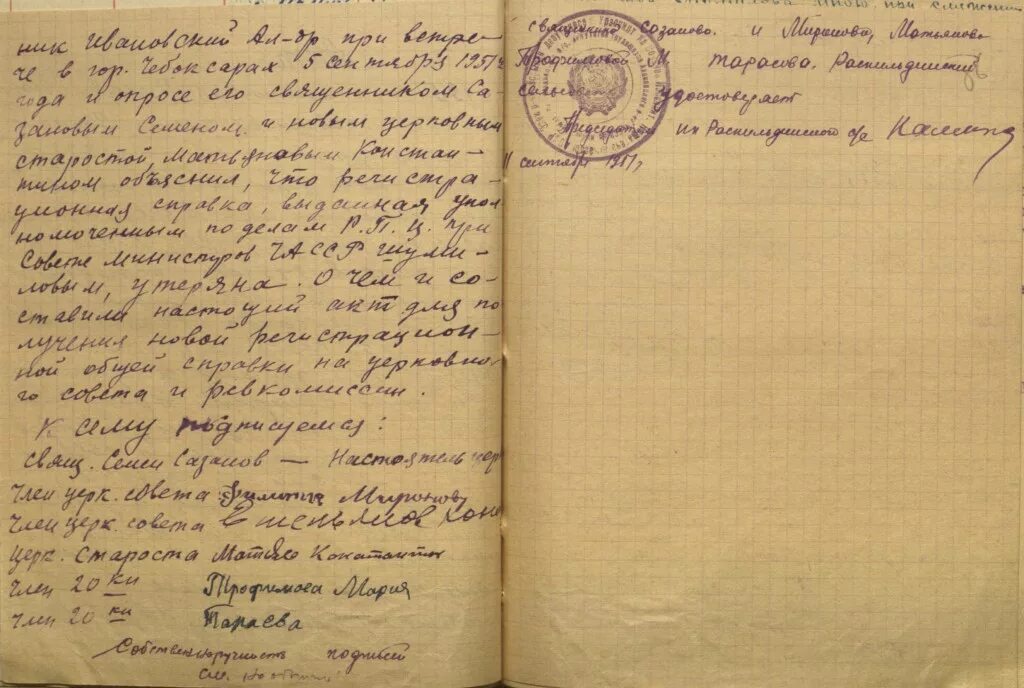 ник Ивановский Ал-др при встре-
че в гор. Чебоксарах 5 сентября 1951
года и опросе его священником Са-
зановым Семеном и новым церковным
старостой, Матьяновым Констан-
тином объяснил, что регистра-
ционная справка, выданная упол
номоченным по делам Р.П.Ц. при
Совете министров ЧАССР Шуми-
ловым, утеряна. О чем и со-
ставили настоящий акт для по
лучения новой регистрацион-
ной общей справки на церковно
го совета и ревкомиссии.
К сему подписуемся:
свящ. Семен Сазанов — Настоятель цер
Член церк. совета Миронов
Член церк. совета
церк. староста
член 20 ки Трофимова Мария
член 20 ки Тарасва
Собственноручность подписей
см. на обороте
священника Созаново. и Миронова, Матьянова
Трофимовой М Тарасова.
сельсовет удостоверяет
Председатель
сентября 1951 г